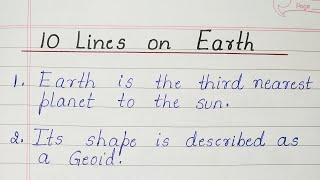 Page
10 Lines on Earth
1. Earth is the third nearest
planet to the sun.
2. Its shape is described as
a Geoid.